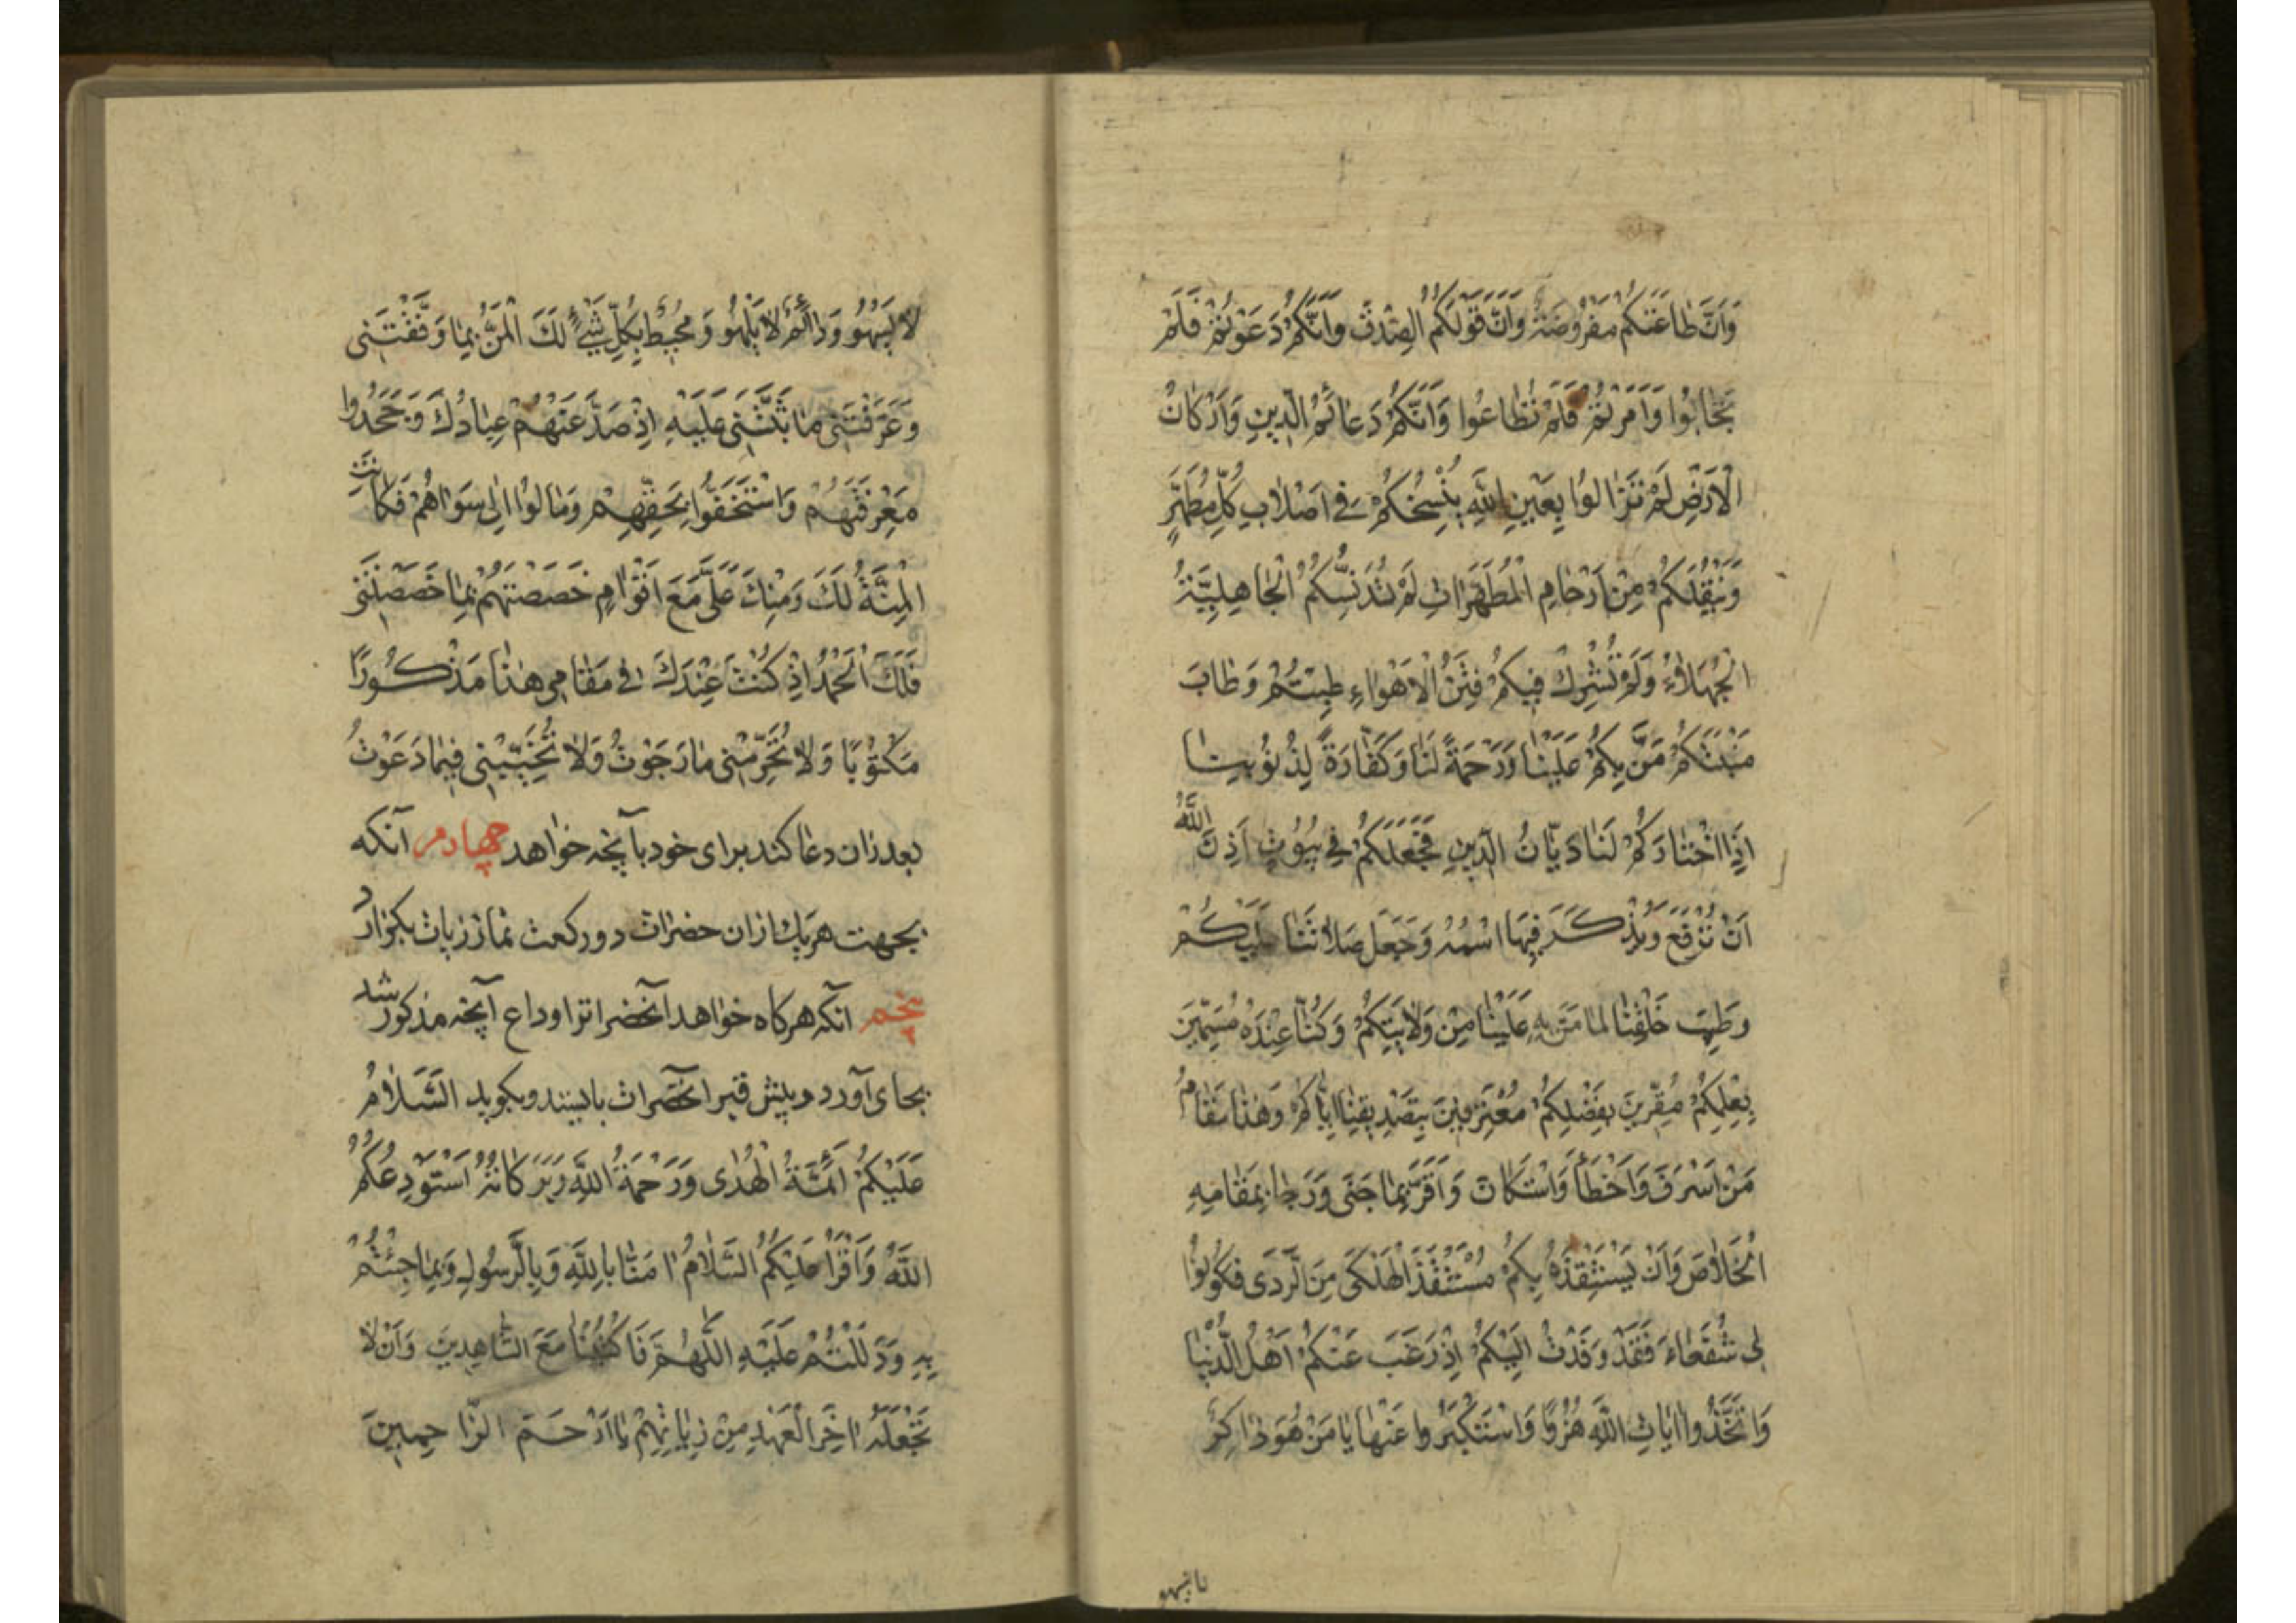 وَاَنَّ طٰاعَتَكُمْ مَفْرُوضَةٌ وَاَنَّ قَوْلَكُمُ الصِّدْقُ وَاَنَّكُمْ دَعَوْتُمْ فَلَمْ
تُجٰابُوا وَاَمَرْتُمْ فَلَمْ تُطٰاعُوا وَاَنَّكُمْ دَعٰائِمُ الدّينِ وَاَرْكٰانُ
الْاَرْضِ لَمْ تَزٰالُوا بِعَيْنِ اللّٰهِ يَنْسَخُكُمْ فى اَصْلٰابِ كُلِّ مُطَهَّرٍ
وَيَنْقُلُكُمْ مِنْ اَرْحٰامِ الْمُطَهَّرٰاتِ لَمْ تُدَنِّسْكُمُ الْجٰاهِلِيَّةُ
الْجَهْلٰاءُ وَلَمْ تَشْرَكْ فيكُمْ فِتَنُ الْاَهْوٰاءِ طِبْتُمْ وَطٰابَ
مَنْبَتُكُمْ مَنَّ بِكُمْ عَلَيْنٰا وَرَحْمَةً لَنٰا وَكَفّٰارَةً لِذُنُوبِنٰا
اِذَا اخْتٰارَكُمْ لَنٰا دَيّٰانُ الدّينِ فَجَعَلَكُمْ فى بُيُوتٍ اَذِنَ اللّٰهُ
اَنْ تُرْفَعَ وَيُذْكَرَ فيهَا اسْمُهُ وَجَعَلَ صَلٰاتَنٰا عَلَيْكُمْ
وَطَيَّبَ خَلْقَنٰا لِمٰا مَنَّ بِهِ عَلَيْنٰا مِنْ وَلٰايَتِكُمْ وَكُنّٰا عِنْدَهُ مُسَمّينَ
بِعِلْمِكُمْ مُقِرّينَ بِفَضْلِكُمْ مُعْتَرِفينَ بِتَصْديقِنٰا اِيّٰاكُمْ وَهٰذٰا مَقٰامُ
مَنْ اَسْرَفَ وَاَخْطَاَ وَاسْتَكٰانَ وَاَقَرَّ بِمٰا جَنٰى وَرَجٰا بِمَقٰامِهِ
الْخَلٰاصَ وَاَنْ يَسْتَنْقِذَهُ بِكُمْ مُسْتَنْقِذُ الْهَلْكٰى مِنَ الرَّدٰى فَكُونُوا
لى شُفَعٰاءَ فَقَدْ وَفَدْتُ اِلَيْكُمْ اِذْ رَغِبَ عَنْكُمْ اَهْلُ الدُّنْيٰا
وَاتَّخَذُوا اٰيٰاتِ اللّٰهِ هُزُوًا وَاسْتَكْبَرُوا عَنْهٰا يٰا مَنْ هُوَ ذٰاكِرٌ
لٰا يَسْهُو وَدٰائِمٌ لٰا يَلْهُو وَمُحيطٌ بِكُلِّ شَىْءٍ لَكَ الْمَنُّ بِمٰا وَفَّقْتَنى
وَعَرَّفْتَنى مٰا ثَبَّتَّنى عَلَيْهِ اِذْ صَدَّ عَنْهُمْ عِبٰادُكَ وَجَحَدُوا
مَعْرِفَتَهُمْ وَاسْتَخَفُّوا بِحَقِّهِمْ وَمٰالُوا اِلٰى سِوٰاهُمْ فَكٰانَتِ
الْمِنَّةُ لَكَ وَمِنْكَ عَلَىَّ مَعَ اَقْوٰامٍ خَصَصْتَهُمْ بِمٰا خَصَصْتَنى
فَلَكَ الْحَمْدُ اِذْ كُنْتُ عِنْدَكَ فى مَقٰامى هٰذٰا مَذْكُورًا
مَكْتُوبًا وَلٰا تَحْرِمْنى مٰا رَجَوْتُ وَلٰا تُخَيِّبْنى فيمٰا دَعَوْتُ
بعد ازان دعا كند براى خود بآنچه خواهد چهارم آنكه
بجهت هر يك ازان حضرات دو ركعت نماز زيارت بگزارد
پنجم آنكه هرگاه خواهد آنحضراترا وداع آنچه مذكور شد
بجاى آورد و پيش قبر آنحضرات بايستد و بگويد السَّلٰامُ
عَلَيْكُمْ اَئِمَّةَ الْهُدٰى وَرَحْمَةُ اللّٰهِ وَبَرَكٰاتُهُ اَسْتَوْدِعُكُمُ
اللّٰهَ وَاَقْرَاُ عَلَيْكُمُ السَّلٰامُ اٰمَنّٰا بِاللّٰهِ وَبِالرَّسُولِ وَبِمٰا جِئْتُمْ
بِهِ وَدَلَلْتُمْ عَلَيْهِ اَللّٰهُمَّ فَاكْتُبْنٰا مَعَ الشّٰاهِدينَ وَاَنْ لٰا
تَجْعَلَهُ اٰخِرَ الْعَهْدِ مِنْ زِيٰارَتِهِمْ يٰا اَرْحَمَ الرّٰاحِمينَ